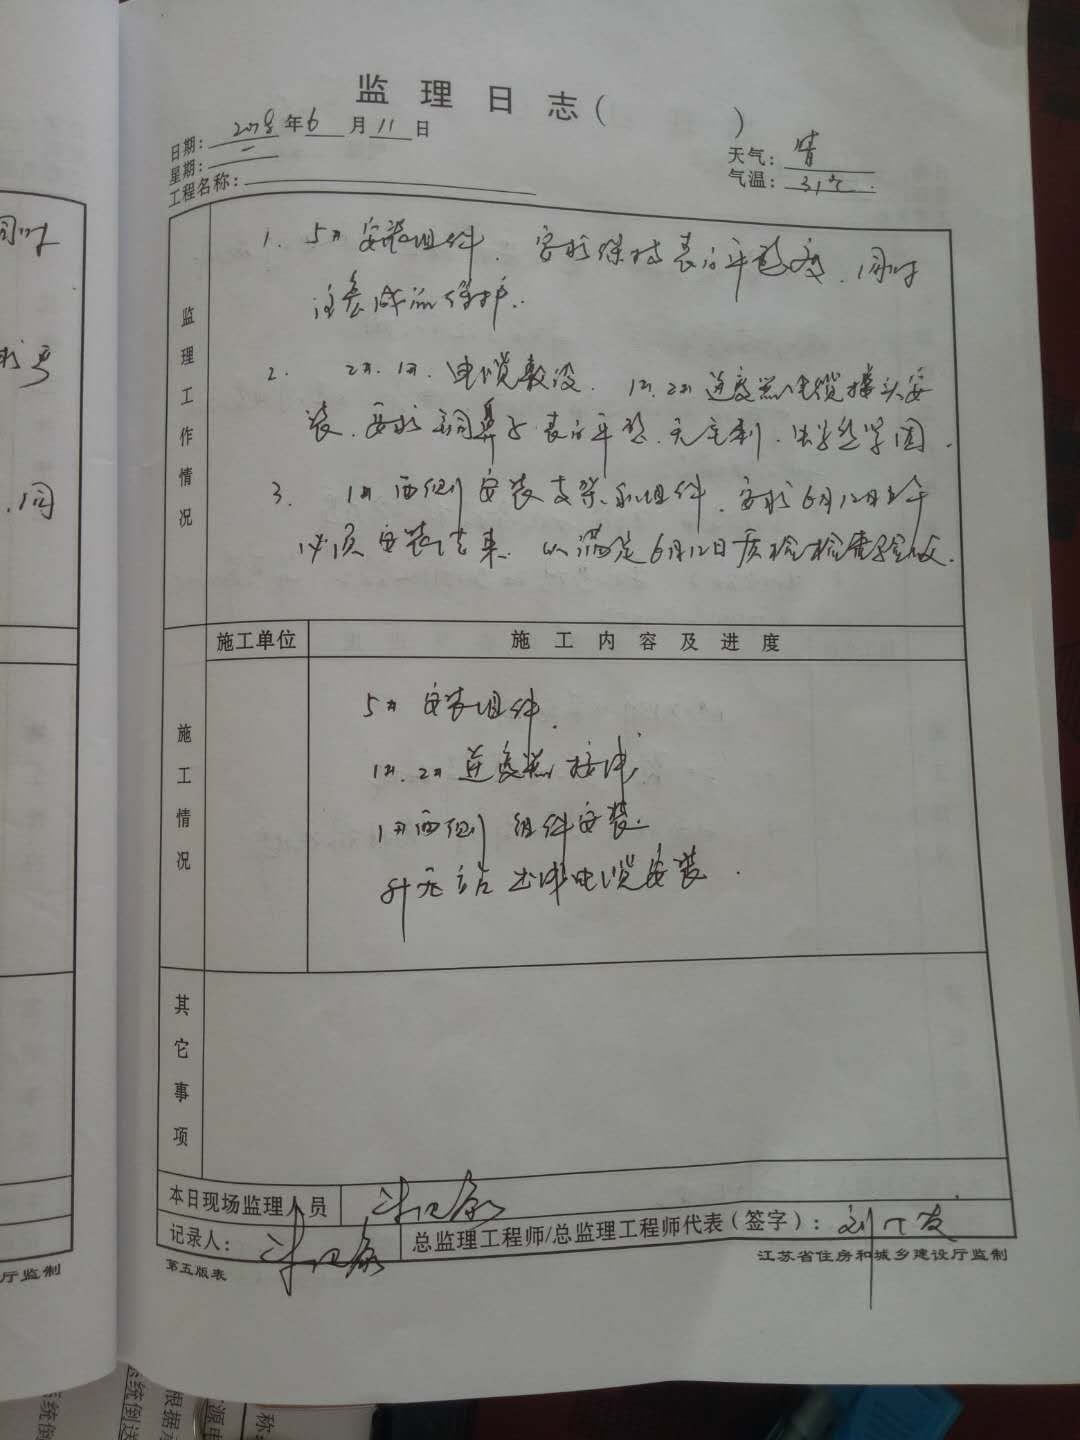 监理日志( )
日期: 2018年6月11日
星期: 一
工程名称:
天气: 晴
气温: 31℃.
监理工作情况
1. 5# 安装组件. 要求保持表面平整度, 同时
注意成品保护.
2. 2#. 1#. 电缆敷设. 1#. 2# 逆变器电缆接头安
装. 要求铜鼻子表面平整. 无毛刺.
3. 1#西侧安装支架和组件. 要求6月12日上午
必须安装结束. 以满足6月12日质检检查验收.
施工情况
施工单位
施工内容及进度
5# 安装组件.
1#. 2# 逆变器接线
1#西侧组件安装.
开元站出线电缆安装.
其它事项
本日现场监理人员
记录人:
总监理工程师/总监理工程师代表(签字):
第五版表
江苏省住房和城乡建设厅监制
同时
,同
厅监制